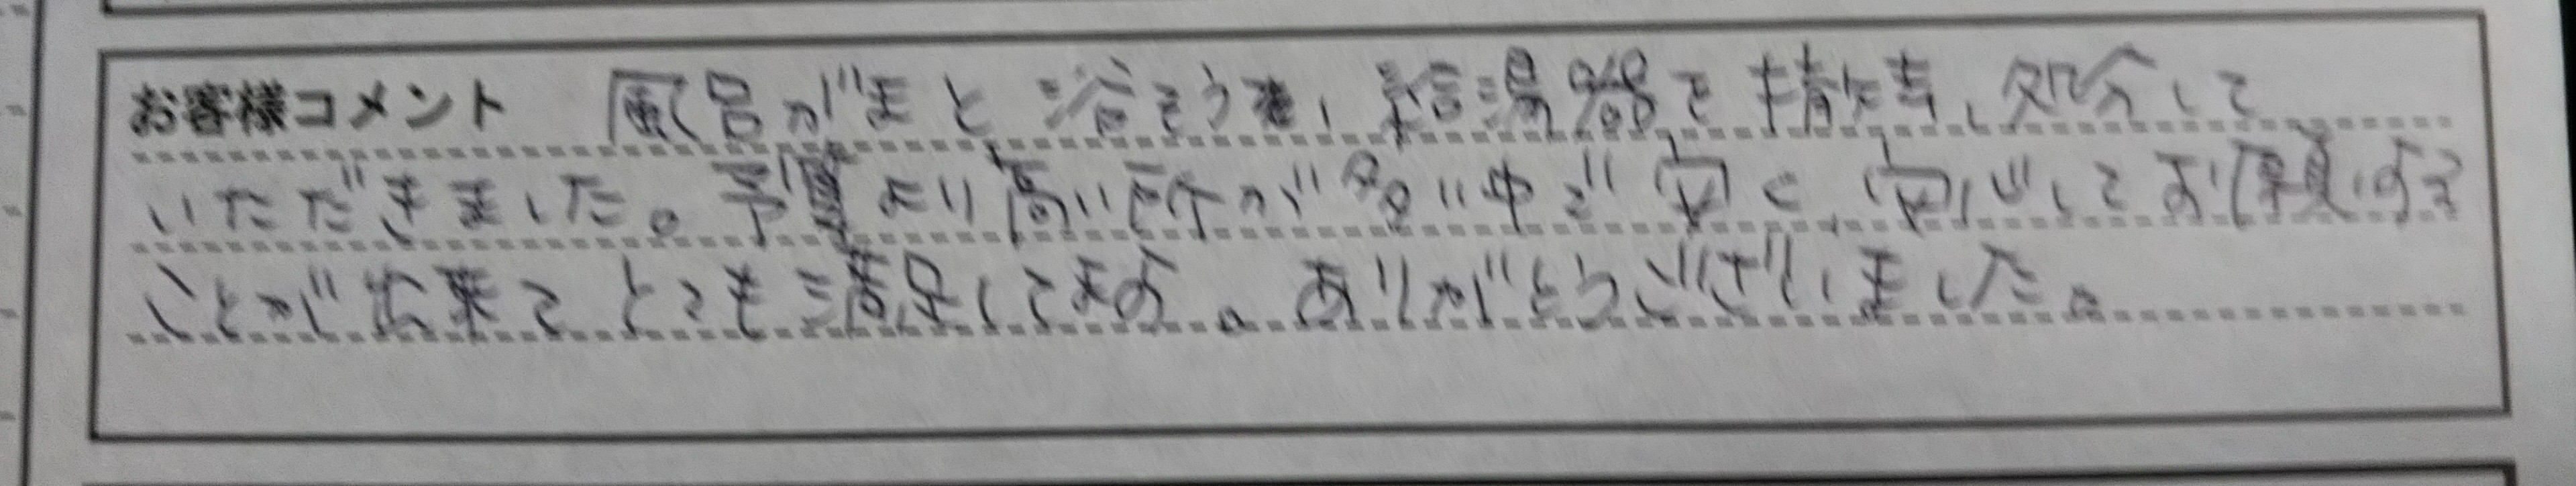 お客様コメント 風呂がまと浴そうを、給湯器を撤去、処分して
いただきました。予算より高い所が多い中で安く、安心してお願いする
ことが出来てとても満足してます。ありがとうございました。